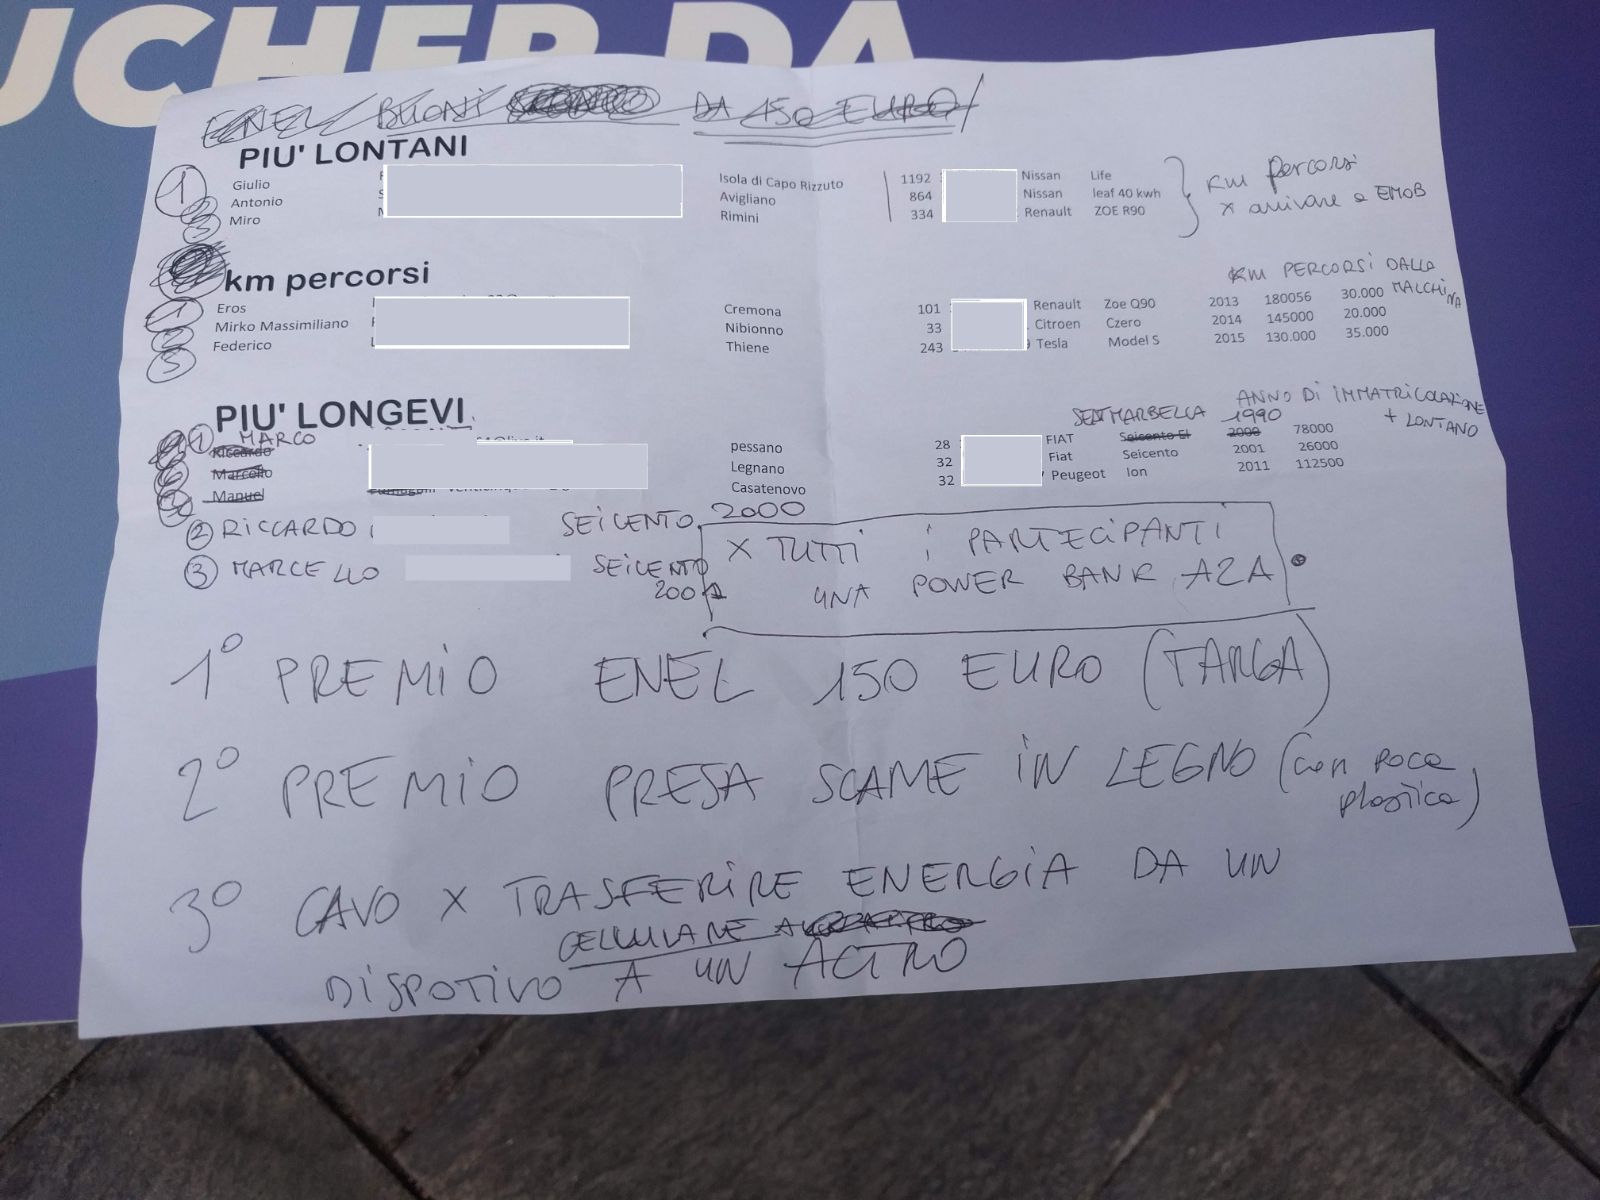 UCHER DA
ENEL BUONI DA 150 EURO
PIU' LONTANI
1 Giulio Isola di Capo Rizzuto 1192 Nissan Life
2 Antonio Avigliano 864 Nissan leaf 40 kwh
3 Miro Rimini 334 Renault ZOE R90
km percorsi
x arrivare a EMOB
km percorsi
KM PERCORSI DALLA MACCHINA
1 Eros Cremona 101 Renault Zoe Q90 2013 180056 30.000
2 Mirko Massimiliano Nibionno 33 Citroen Czero 2014 145000 20.000
3 Federico Thiene 243 Tesla Model S 2015 130.000 35.000
PIU' LONGEVI
ANNO DI IMMATRICOLAZIONE
+ LONTANO
1 MARCO SEAT MARBELLA 1990
Riccardo pessano 28 FIAT Seicento El 2000 78000
Marcello Legnano 32 Fiat Seicento 2001 26000
Manuel Casatenovo 32 Peugeot Ion 2011 112500
2 RICCARDO SEICENTO 2000
3 MARCELLO SEICENTO
X TUTTI i PARTECIPANTI
UNA POWER BANK A2A
1° PREMIO ENEL 150 EURO (TARGA)
2° PREMIO PRESA SCAME IN LEGNO (con poca
plastica)
3° CAVO X TRASFERIRE ENERGIA DA UN
CELLULARE
DISPOTIVO A UN ALTRO